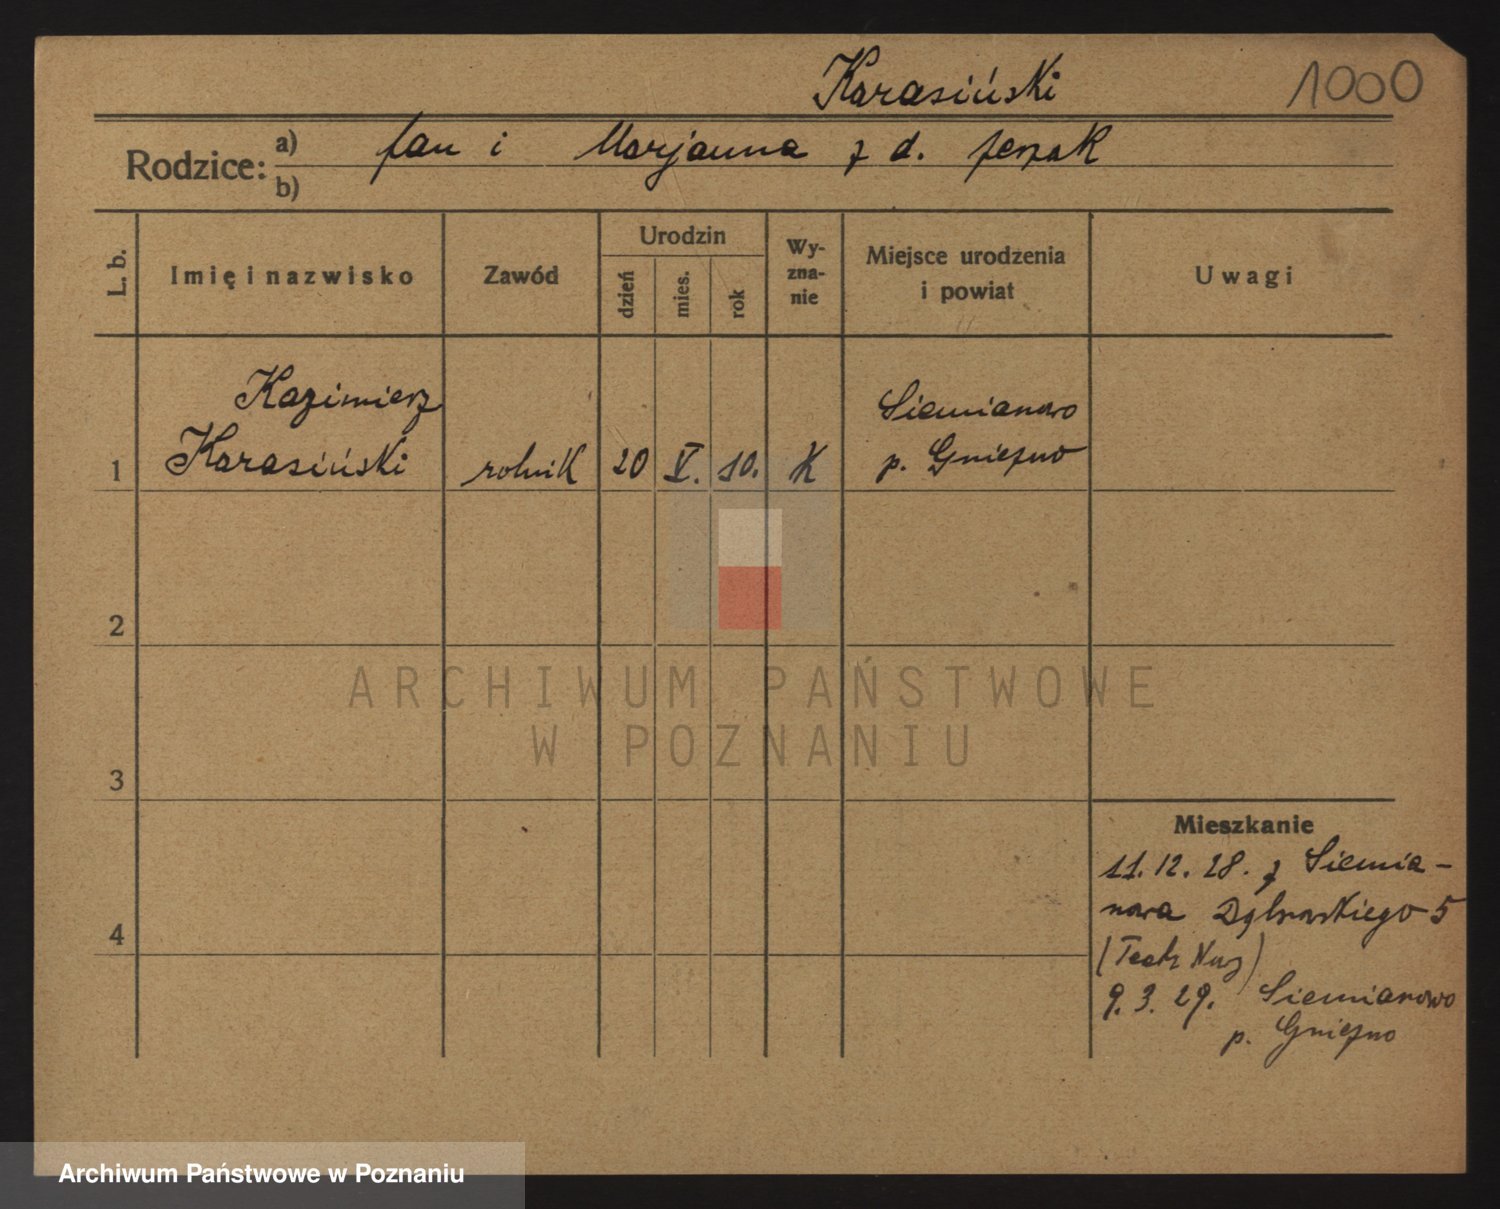 Karasiński
1000
Rodzice: a) Jan i Marjanna z d. Jerzak
b)
L. b.
Imię i nazwisko
Zawód
Urodzin
dzień
mies.
rok
Wy-
zna-
nie
Miejsce urodzenia
i powiat
Uwagi
Kazimierz
Karasiński
1
rolnik
20
V.
10.
K
Siemianowo
p. Gniezno
2
3
4
Mieszkanie
11.12.28. z Siemia-
nowa Dąbrowskiego 5
9.3.29. Siemianowo
p. Gniezno
ARCHIWUM PAŃSTWOWE
W POZNANIU
Archiwum Państwowe w Poznaniu